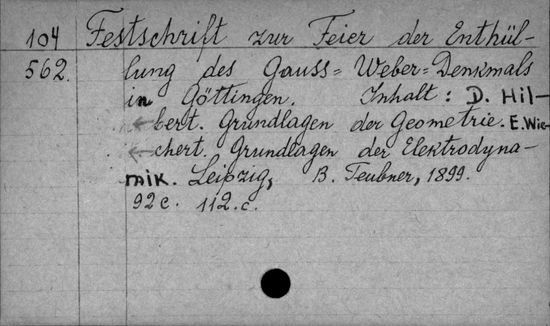 104 Festschrift zur Feier der Enthül-
562. lung des Gauss=Weber=Denkmals
in Göttingen. Inhalt: D. Hil-
bert. Grundlagen der Geometrie. E. Wie-
chert. Grundlagen der Elektrodyna-
mik. Leipzig, B. Teubner, 1899.
92 c. 112.c.